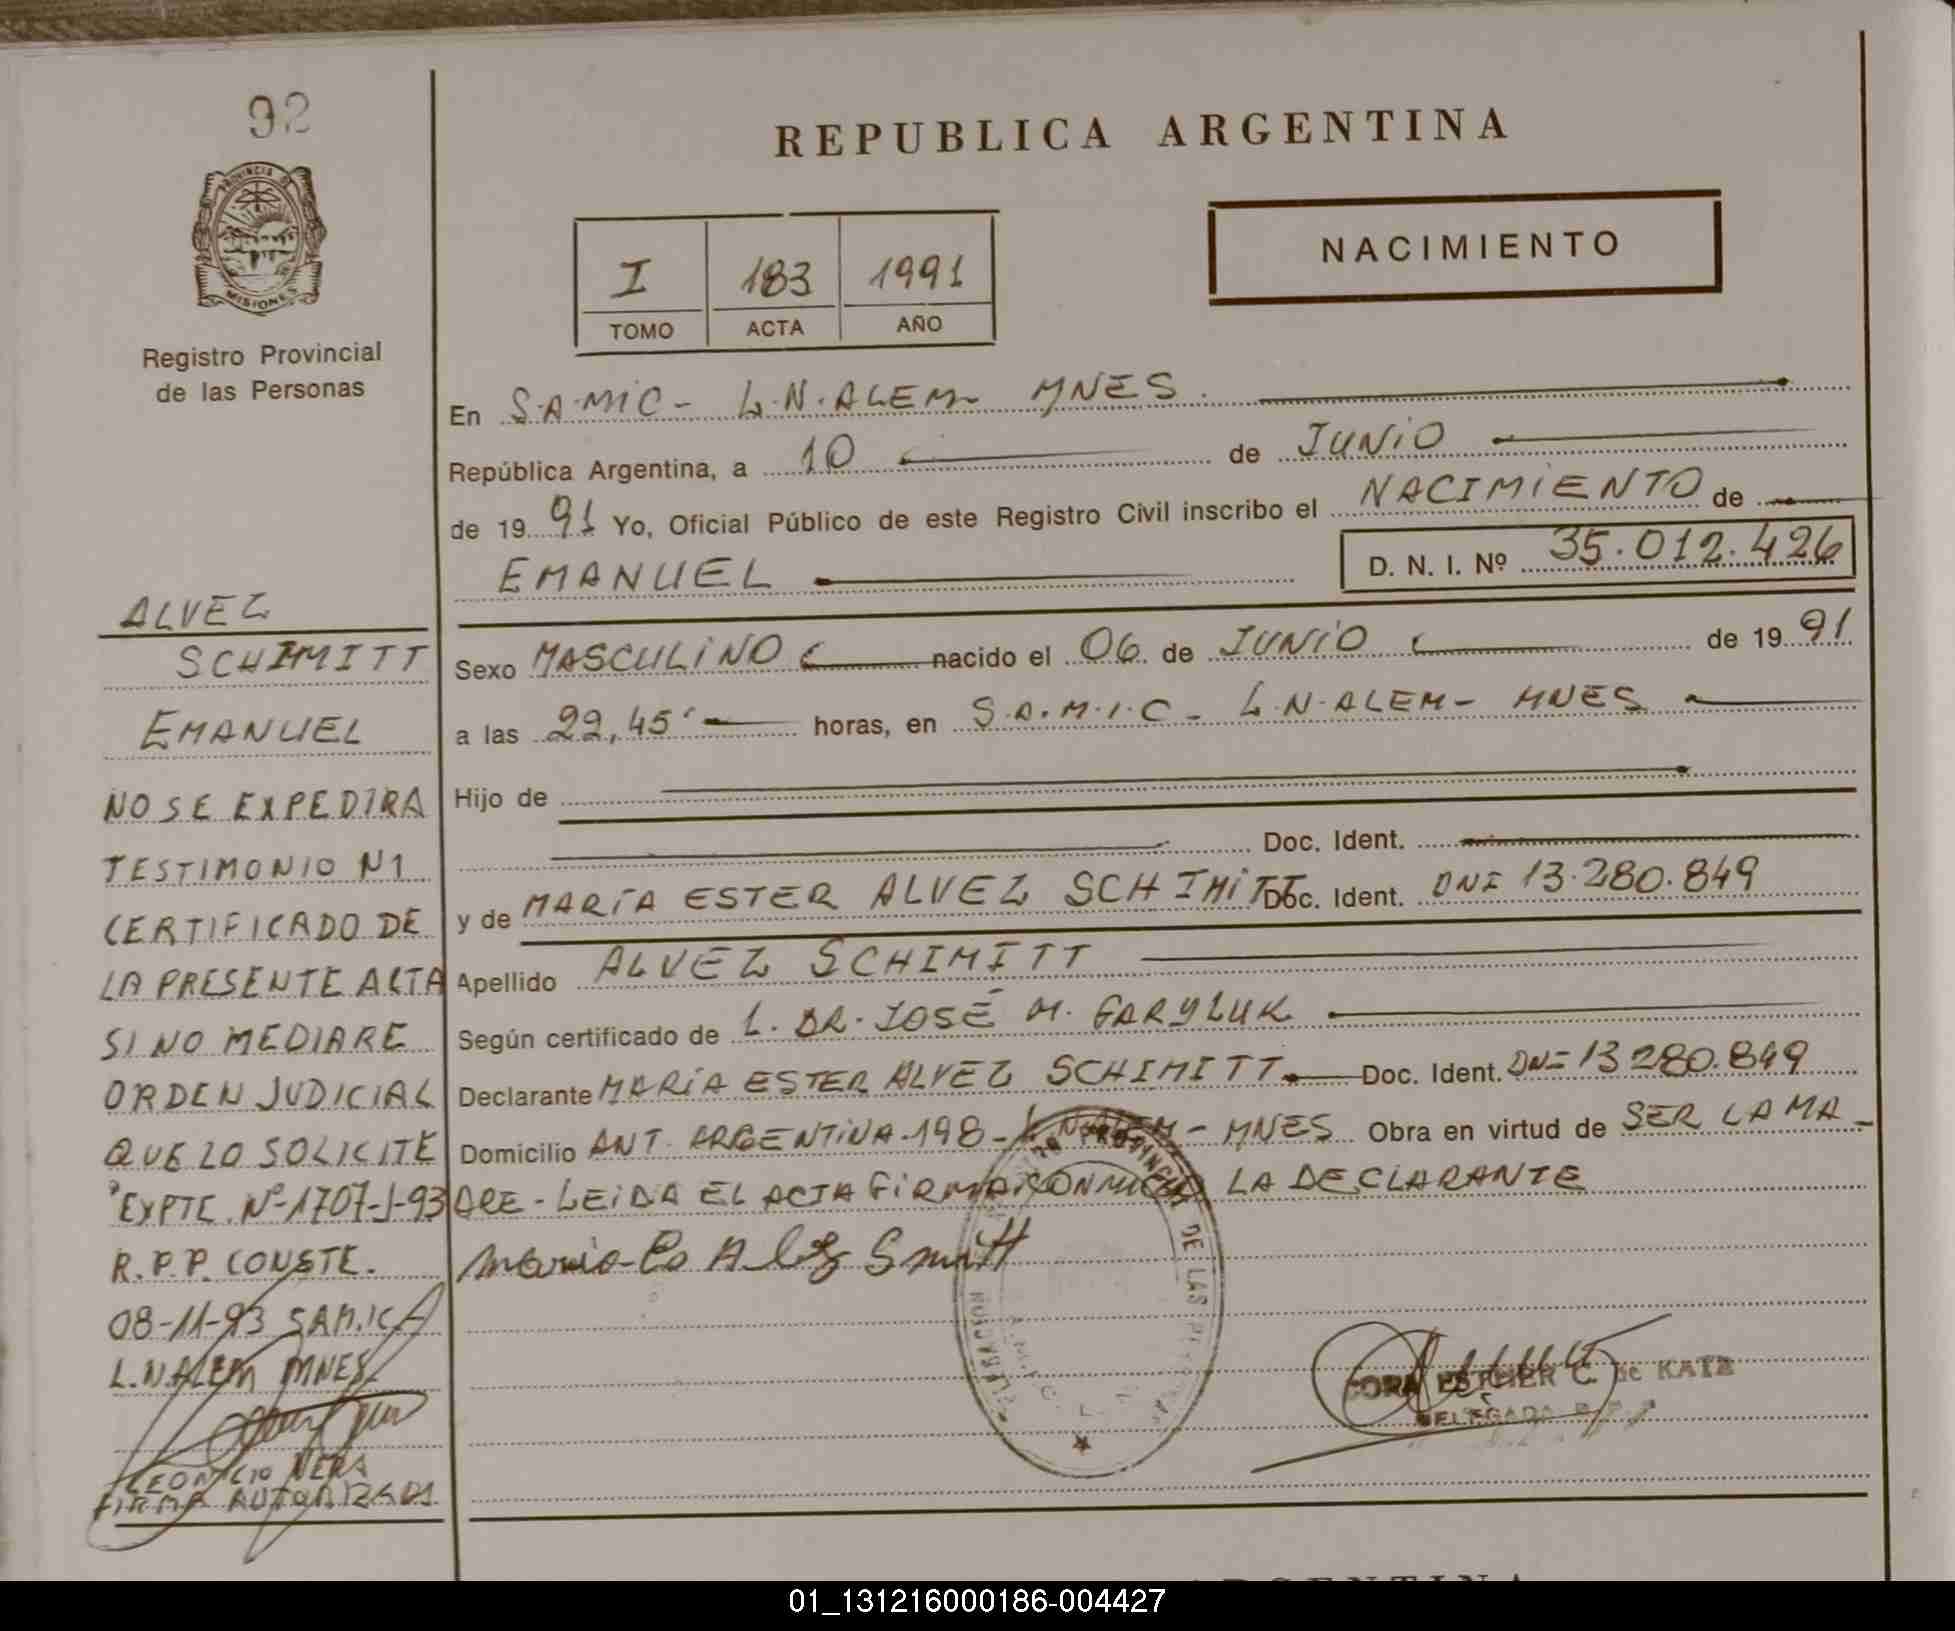 92
PROVINCIA DE
MISIONES
Registro Provincial
de las Personas
REPUBLICA ARGENTINA
NACIMIENTO
I 183 1991
TOMO ACTA AÑO
En S.A.MIC- L.N.ALEM- MNES.
República Argentina, a 10 de JUNIO
de 19 91 Yo, Oficial Público de este Registro Civil inscribo el NACIMIENTO de
EMANUEL D. N. I. Nº 35.012.426
Sexo MASCULINO nacido el 06 de JUNIO de 19 91
a las 22,45' horas, en S.A.M.I.C- L.N.ALEM- MNES
Hijo de
Doc. Ident.
y de MARÍA ESTER ALVEZ SCHIMITT Doc. Ident. DNI 13.280.849
Apellido ALVEZ SCHIMITT
Según certificado de L. DR. JOSÉ M. GARYLUK
Declarante MARÍA ESTER ALVEZ SCHIMITT Doc. Ident. DNI 13 280.849
Domicilio ANT. ARGENTINA-198- L.N.ALEM- MNES Obra en virtud de SER LA MA-
DRE- LEIDA EL ACTA FIRMA CONMIGO LA DECLARANTE
ALVEZ
SCHIMITT
EMANUEL
NO SE EXPEDIRA
TESTIMONIO NI
CERTIFICADO DE
LA PRESENTE ACTA
SI NO MEDIARE
ORDEN JUDICIAL
QUE LO SOLICITE
EXPTE. Nº-1707-J-93
R.P.P. CONSTE.
08-11-93 SAMIC
L.N.ALEM MNES
LEONICIO NERA
FIRMA AUTORIZADA
CORA ESTHER C. de KATZ
DELEGADA R.P.P
PROVINCIAL DE LAS
01_131216000186-004427